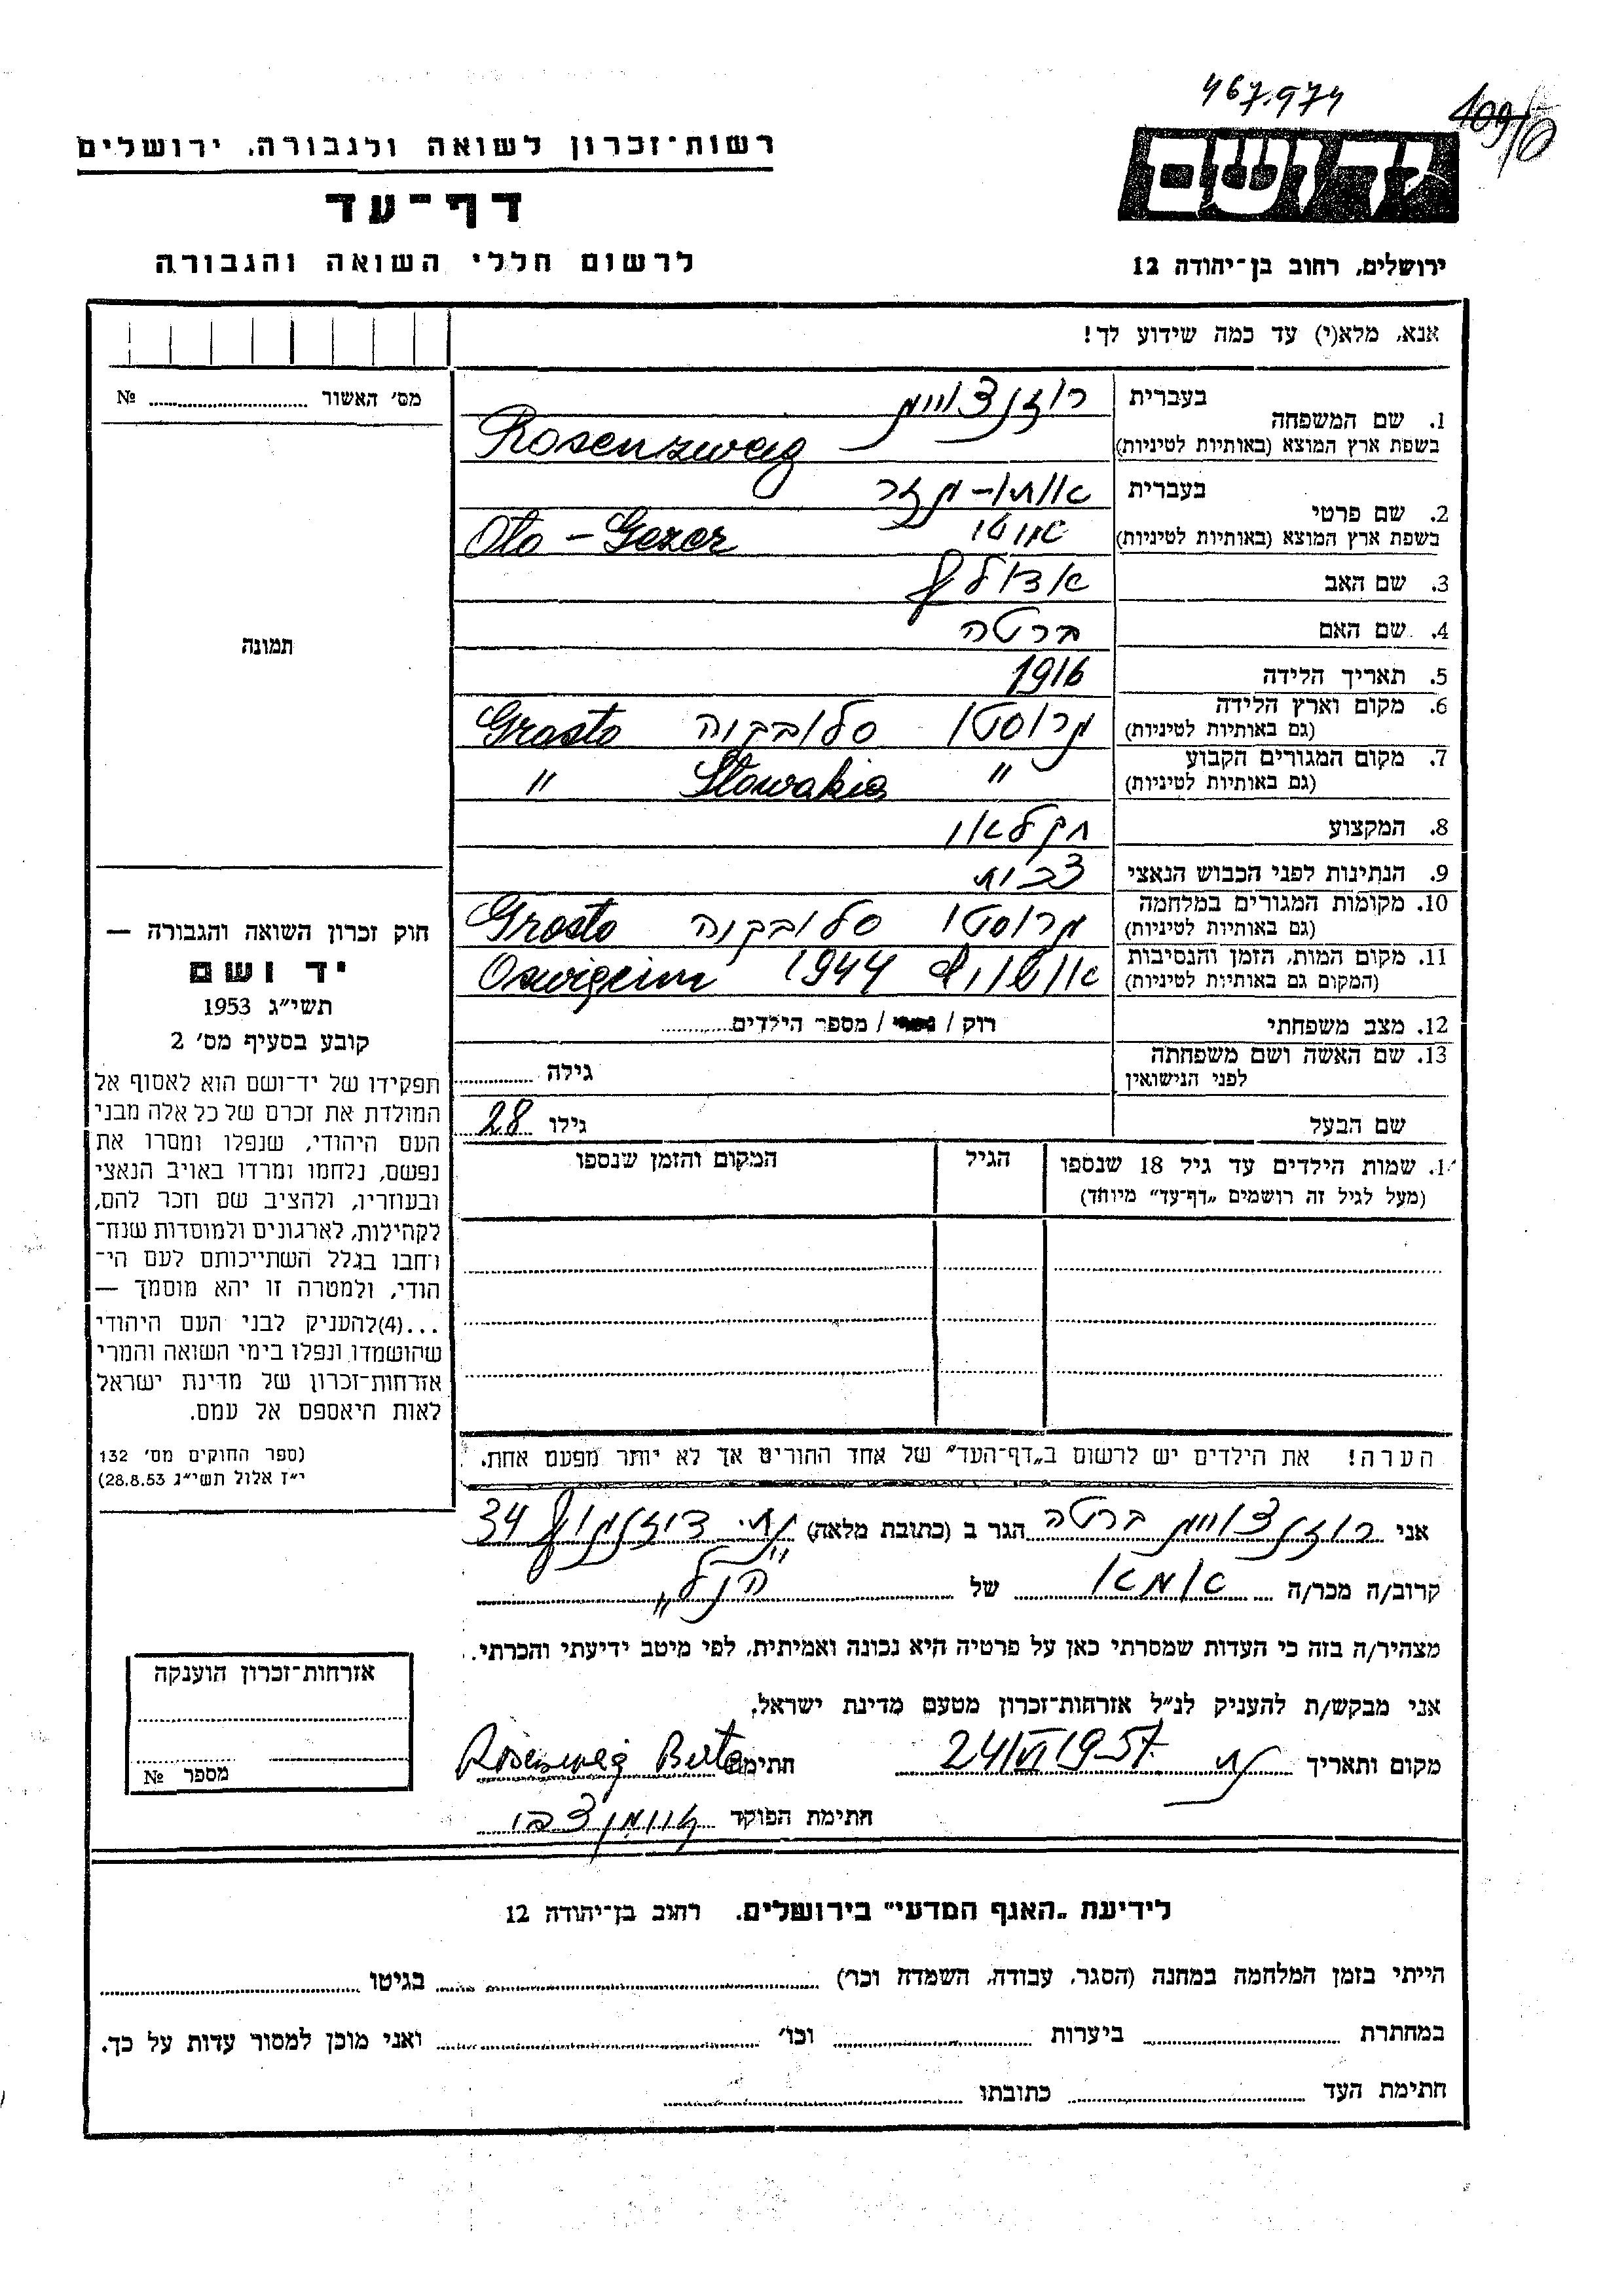 467.974
רשות־זכרון לשואה ולגבורה, ירושלים
דף־עד
לרשום חללי השואה והגבורה
ידושם
ירושלים, רחוב בן־יהודה 12
אנא, מלא(י) עד כמה שידוע לך!
מס׳ האשור № ........
תמונה
חוק זכרון השואה והגבורה —
יד ושם
תשי״ג 1953
קובע בסעיף מס׳ 2
תפקידו של יד־ושם הוא לאסוף אל
המולדת את זכרם של כל אלה מבני
העם היהודי, שנפלו ומסרו את
נפשם, נלחמו ומרדו באויב הנאצי
ובעוזריו, ולהציב שם וזכר להם,
לקהילות, לארגונים ולמוסדות שנח־
רחבו בגלל השתייכותם לעם הי־
הודי, ולמטרה זו יהא מוסמך —
...(4)להעניק לבני העם היהודי
שהושמדו ונפלו בימי השואה והמרי
אזרחות־זכרון של מדינת ישראל
לאות היאספם אל עמם.
(ספר החוקים מס׳ 132
י״ז אלול תשי״ג 28.8.53)
1. שם המשפחה בעברית רוזנצוייג
בשפת ארץ המוצא (באותיות לטיניות) Rosenzweig
2. שם פרטי בעברית אותו-גזר
אוטו
בשפת ארץ המוצא (באותיות לטיניות) Oto - Gezer
3. שם האב אדולף
4. שם האם ברטה
5. תאריך הלידה 1916
6. מקום וארץ הלידה (גם באותיות לטיניות) גרוסטו סלובקיה Grosto
7. מקום המגורים הקבוע (גם באותיות לטיניות) " Slowakia "
8. המקצוע חקלאי
9. הנתינות לפני הכבוש הנאצי
10. מקומות המגורים במלחמה (גם באותיות לטיניות) גרוסטו סלובקיה Grosto
11. מקום המות, הזמן והנסיבות (המקום גם באותיות לטיניות) 1944 Oswigcim
12. מצב משפחתי רוק / נשוי / מספר הילדים........
13. שם האשה ושם משפחתה לפני הנישואין גילה ........
שם הבעל גילו 28
1. שמות הילדים עד גיל 18 שנספו
(מעל לגיל זה רושמים „דף־עד״ מיוחד)
הגיל
המקום והזמן שנספו
הערה! את הילדים יש לרשום ב„דף־העד״ של אחד ההורים אך לא יותר מפעם אחת.
אני רוזנצוייג ברטה הגר ב (כתובת מלאה) ת״י דיזנגוף 34
קרוב/ה מכר/ה אמא של הנ״ל
מצהיר/ה בזה כי העדות שמסרתי כאן על פרטיה היא נכונה ואמיתית, לפי מיטב ידיעתי והכרתי.
אני מבקש/ת להעניק לנ״ל אזרחות־זכרון מטעם מדינת ישראל.
מקום ותאריך 24/VI 1957 חתימה Rosenzweig Berta
חתימת הפוקד
אזרחות־זכרון הוענקה
מספר №
לידיעת „האגף המדעי״ בירושלים. רחוב בן־יהודה 12
הייתי בזמן המלחמה במחנה (הסגר, עבודה, השמדה וכר׳) ........ בגיטו ........
במחתרת ........ ביערות ........ וכו׳ ........ ואני מוכן למסור עדות על כך.
חתימת העד ........ כתובתו ........